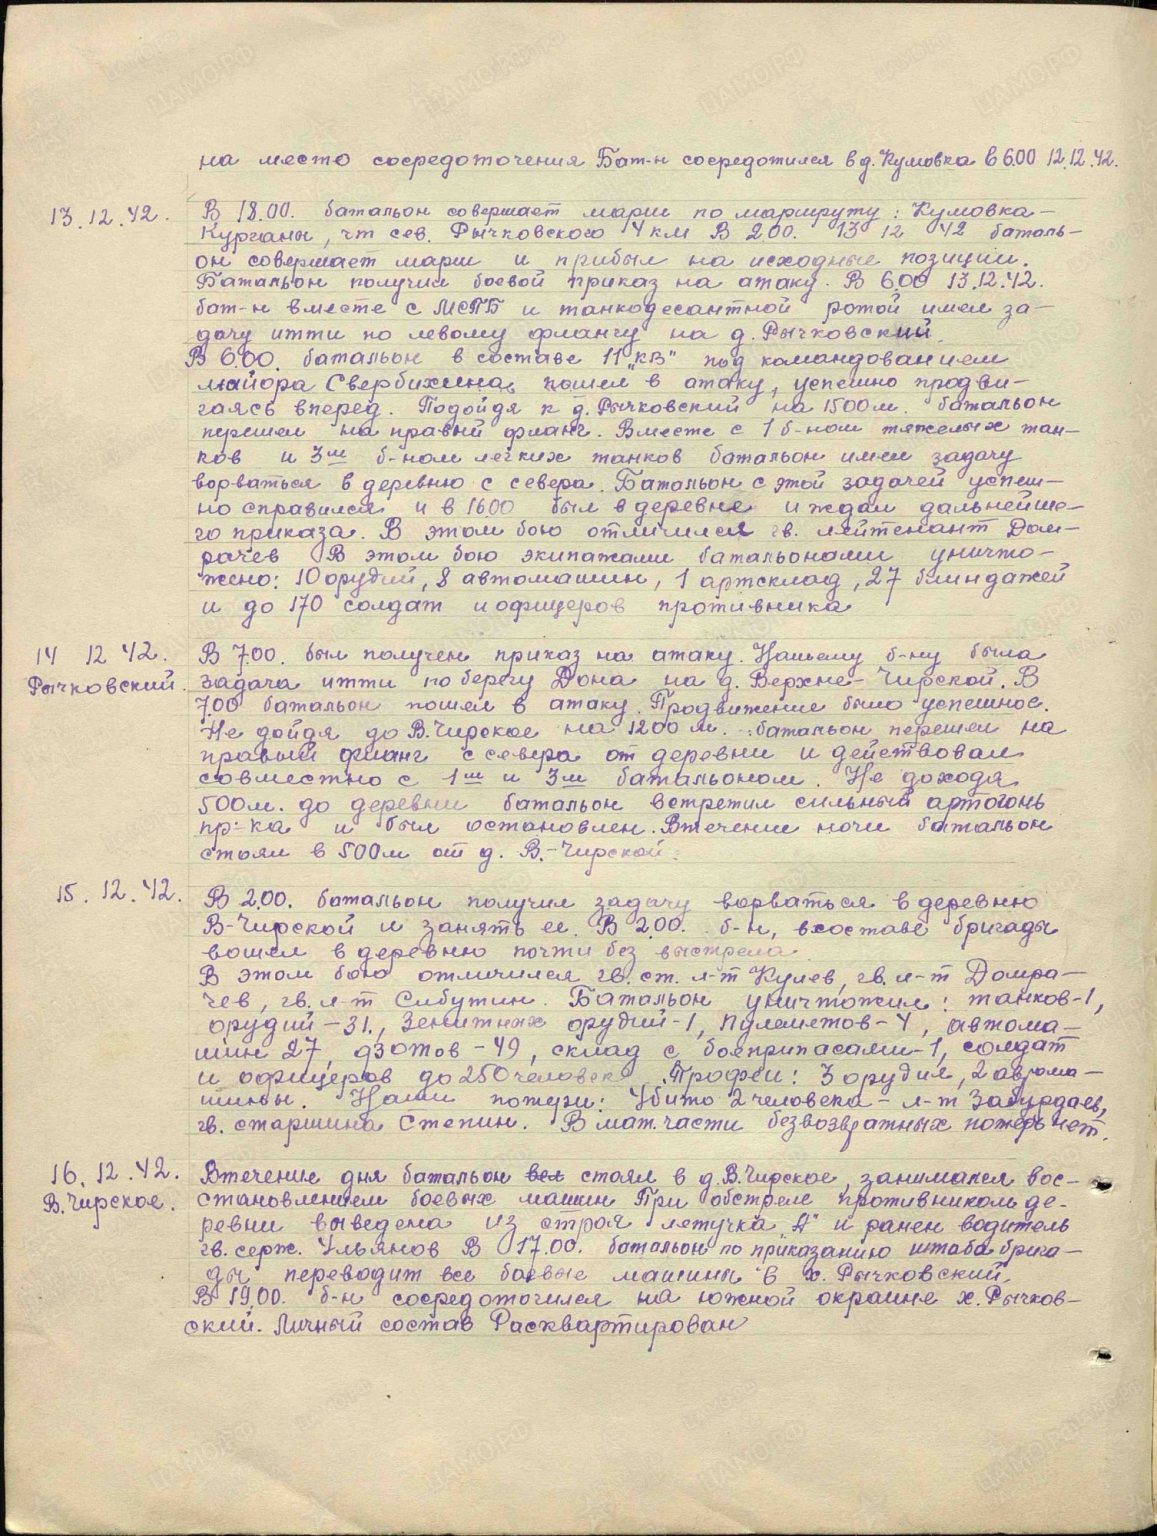 на место сосредоточения Бат-н сосредотился в д. Кумовка в 6.00 12.12.42.
13.12.42. В 18.00. батальон совершает марш по маршруту: Кумовка –
Курганы, что сев. Рычковского 4 км В 2.00. 13 12 42 баталь-
он совершает марш и прибыл на исходные позиции.
Батальон получил боевой приказ на атаку. В 6.00 13.12.42.
бат-н вместе с МСПБ и танкодесантной ротой имел за-
дачу итти по левому флангу на д. Рычковский.
В 6.00. батальон в составе 11 „КВ" под командованием
майора Свербихина, пошел в атаку, успешно продви-
гаясь вперед. Подойдя к д. Рычковский на 1500 м. батальон
перешел на правый фланг. Вместе с 1 б-ном тяжелых тан-
ков и 3м б-ном легких танков батальон имел задачу
ворваться в деревню с севера. Батальон с этой задачей успеш-
но справился и в 1600 был в деревне и ждал дальнейше-
го приказа. В этом бою отличился гв. лейтенант Дом-
рачев В этом бою экипажами батальонами уничто-
жено: 10 орудий, 8 автомашин, 1 артсклад, 27 блиндажей
и до 170 солдат и офицеров противника
14 12 42. В 7.00. был получен приказ на атаку. Нашему б-ну была
Рычковский. задача итти по берегу Дона на д. Верхне-Чирской. В
7.00 батальон пошел в атаку. Продвижение было успешное.
Не дойдя до В.Чирское на 1200 м. батальон перешел на
правый фланг с севера от деревни и действовал
совместно с 1м и 3м батальоном. Не доходя
500м. до деревни батальон встретил сильный артогонь
пр-ка и был остановлен. Втечение ночи батальон
стоял в 500м от д. В.-Чирской.
15.12.42. В 2.00. батальон получил задачу ворваться в деревню
В-Чирской и занять ее. В 2.00. б-н, в составе бригады
вошел в деревню почти без выстрела.
В этом бою отличился гв. ст. л-т Кулев, гв. л-т Домра-
чев, гв. л-т Сибутин. Батальон уничтожил: танков-1,
орудий – 31., Зенитных орудий-1, пулеметов-4, автома-
шин 27, дзотов – 49, склад с боеприпасами-1, солдат
и офицеров до 250 человек Трофеи: 3 орудия, 2 автома-
шины. Наши потери: Убито 2 человека – л-т Забурдаев,
гв. старшина Степин. В мат. части безвозвратных потерь нет.
16.12.42. Втечение дня батальон вел стоял в д. В.Чирское, занимался вос-
В.Чирское. становлением боевых машин При обстреле противником де-
ревни выведена из строя летучка „А" и ранен водитель
гв. серж. Ульянов В 17.00. батальон по приказанию штаба брига-
ды переводит все боевые машины в х. Рычковский.
В 19.00. б-н сосредоточился на южной окраине х. Рычков-
ский. Личный состав Расквартирован